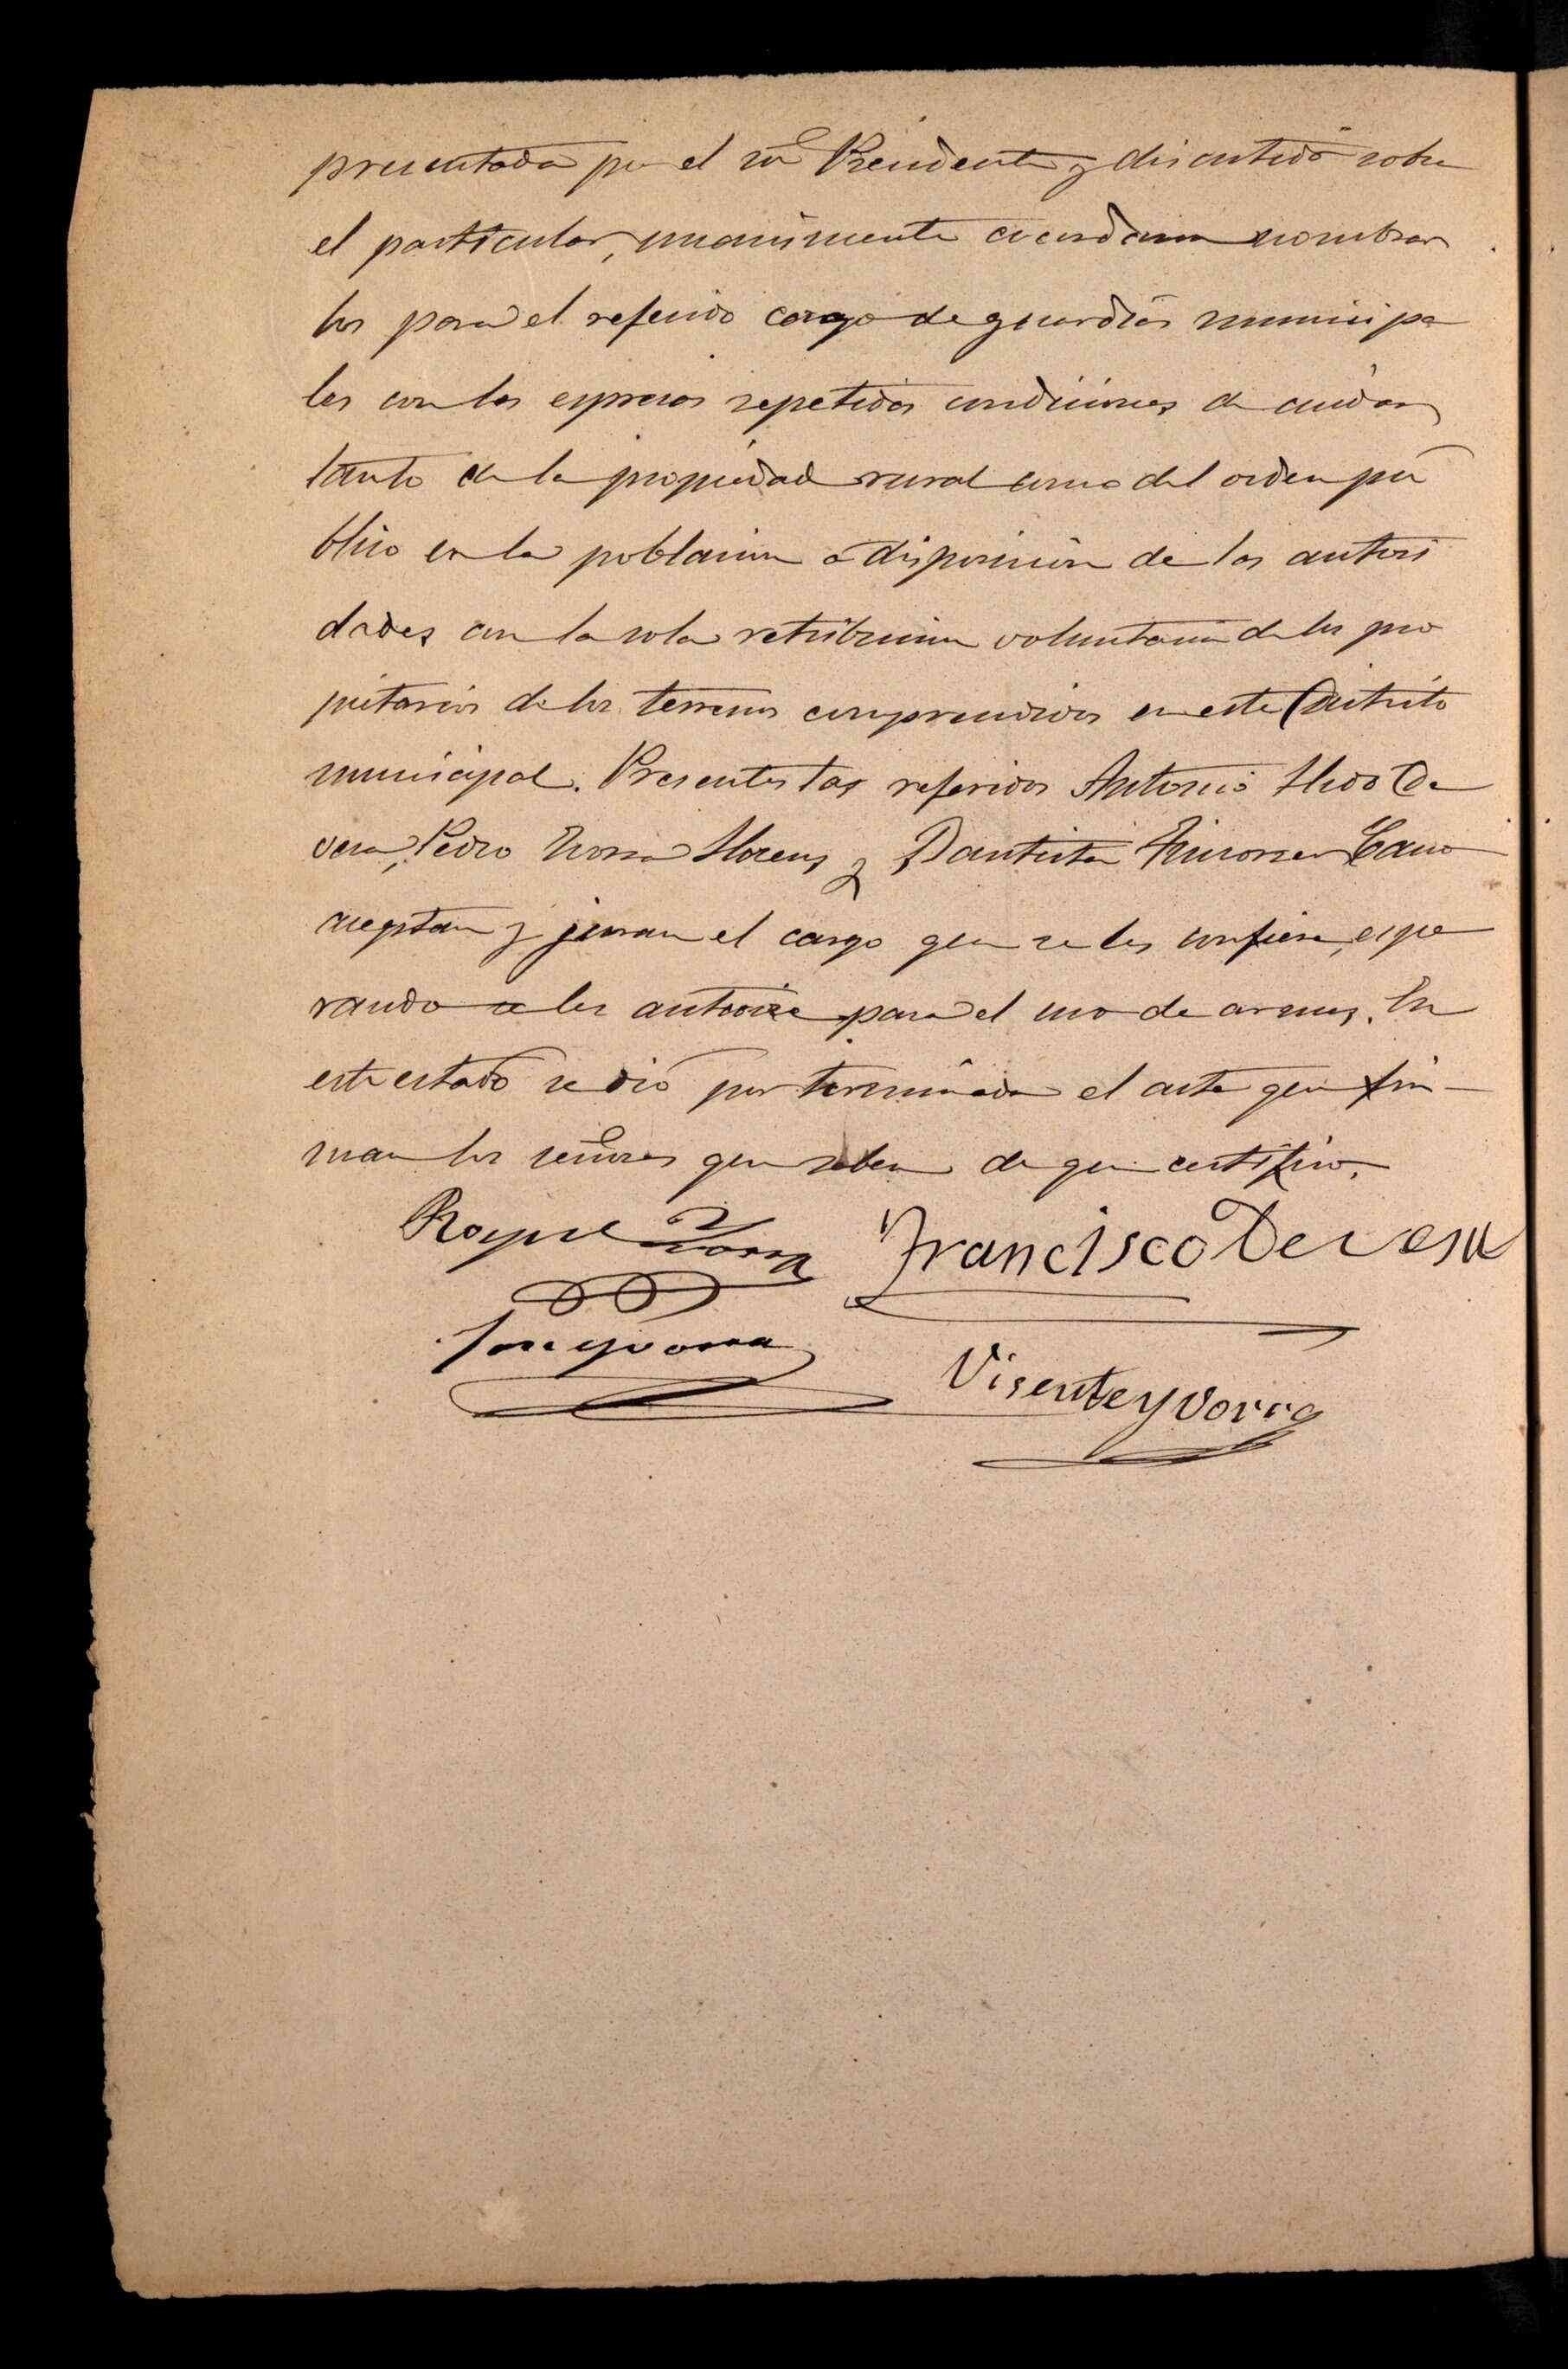 presentada por el Sor Presidente y discutido sobre
el particular, unanimente acuerdan nombrar
los para el referido cargo de guardias municipa
les con las espresas repetidas condiciones de cuidar
tanto de la propiedad rural como del orden pú
blico en la poblacion á disposicion de las autori
dades con la sola retribucion voluntaria de los pro
pietarios de los terrenos comprendidos en este Distrito
municipal. Presentes los referidos Antonio De
vesa, Pedro Llorens y Bautista Cano
aceptan y juran el cargo que se les confiere, espe
rando se les autorice para el uso de armas. En
este estado se dió por terminada el acta que fir
man los señores que saben de que certifico.
Roque Yvorra Francisco Devesa
Jose Yvorra
Visente Yvorra